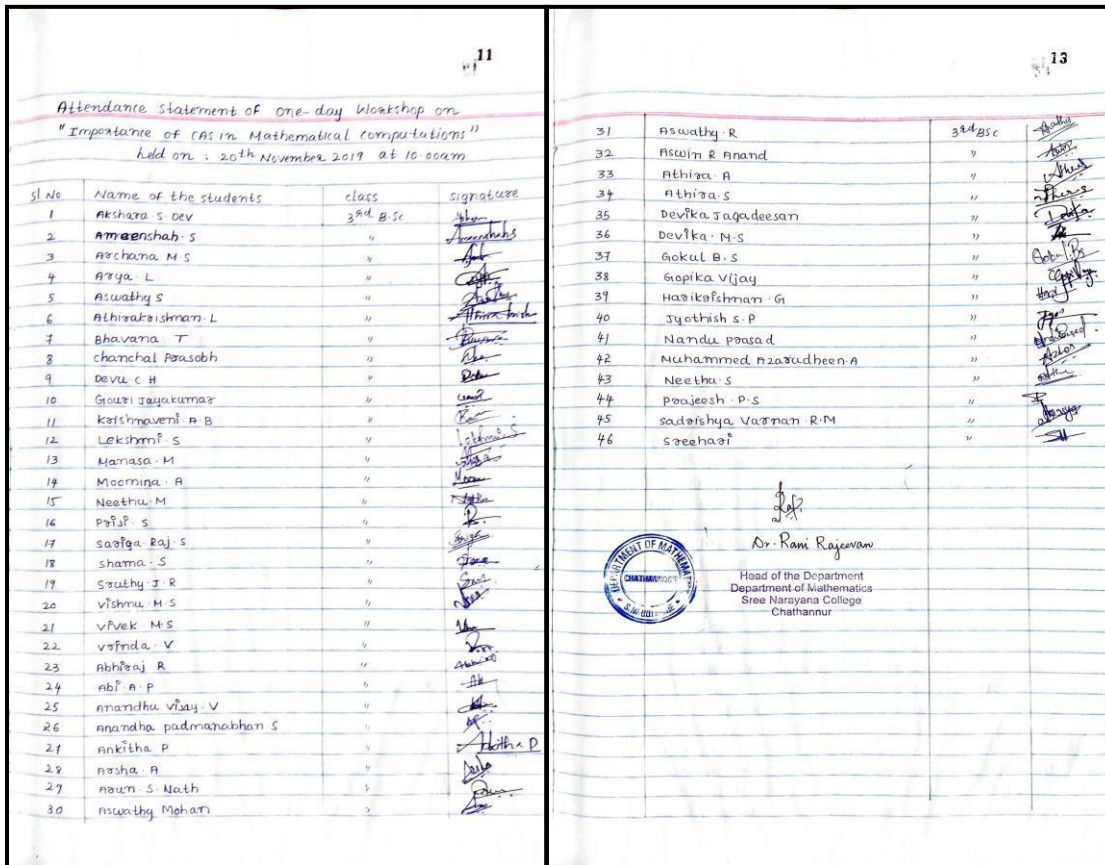 11
Attendance statement of one-day Workshop on
"Importance of CAS in Mathematical computations"
held on : 20th November 2019 at 10.00am
Sl No Name of the students class signature
1 Akshara S Dev 3rd B.Sc
2 Ameenshah.S " Ameenshah S
3 Archana M.S "
4 Arya.L "
5 Aswathy S "
6 Athirakrishnan.L "
7 Bhavana.T "
8 chanchal Prasobh "
9 Devu C H "
10 Gouri Jayakumar "
11 Krishnaveni.A.B "
12 Lekshmi.S " Lekshmi.S
13 Manasa.M "
14 Moomina.A "
15 Neethu.M "
16 Priji.S "
17 Sariga.Raj.S "
18 shama.S "
19 Sruthy.J.R "
20 vishnu.M.S "
21 vivek.M.S "
22 vrinda.V "
23 Abhiraj R "
24 Abi.A.P "
25 Anandhu vijay.V "
26 Anandha padmanabhan S "
27 Ankitha P " Ankitha P
28 Arsha.A "
29 Arun.S.Nath "
30 Aswathy Mohan "
13
31 Aswathy.R 3rd BSc
32 Aswin R Anand "
33 Athira.A "
34 Athira.S "
35 Devika Jagadeesan "
36 Devika.M.S "
37 Gokul B.S " Gokul.B.S
38 Gopika Vijay "
39 Harikrishnan.G "
40 Jyothish S.P "
41 Nandu prasad "
42 Muhammed Azarudheen.A "
43 Neethu.S "
44 prajeesh.P.S "
45 sadrishya Varnan.R.M "
46 sreehari "
Dr. Rani Rajeevan
DEPARTMENT OF MATHEMATICS
CHATHANNOOR
Head of the Department
Department of Mathematics
Sree Narayana College
Chathannur